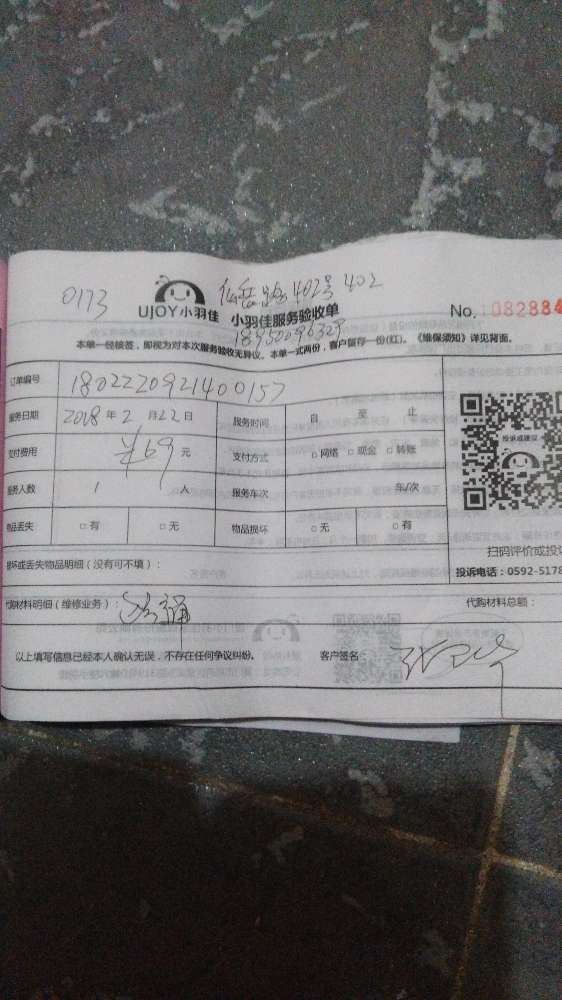 0173 仙岳路402号402
UJOY小羽佳 小羽佳服务验收单 No. 1082884
18950096329
本单一经接签，即视为对本次服务验收无异议。本单一式两份，客户留存一份(红)。《维保须知》详见背面。
订单编号 1802220921400157
服务日期 2018 年 2 月 22 日 服务时间 自 至 止
支付费用 ¥69 元 支付方式 □ 网络 □ 现金 □ 转账
投诉或建议
服务人数 1 人 服务车次 车/次
物品丢失 □ 有 □ 无 物品损坏 □ 无 □ 有
扫码评价或投
损坏或丢失物品明细（没有可不填）： 投诉电话：0592-5178
代购材料明细（维修业务）： 代购材料总额：
以上填写信息已经本人确认无误，不存在任何争议纠纷。 客户签名：